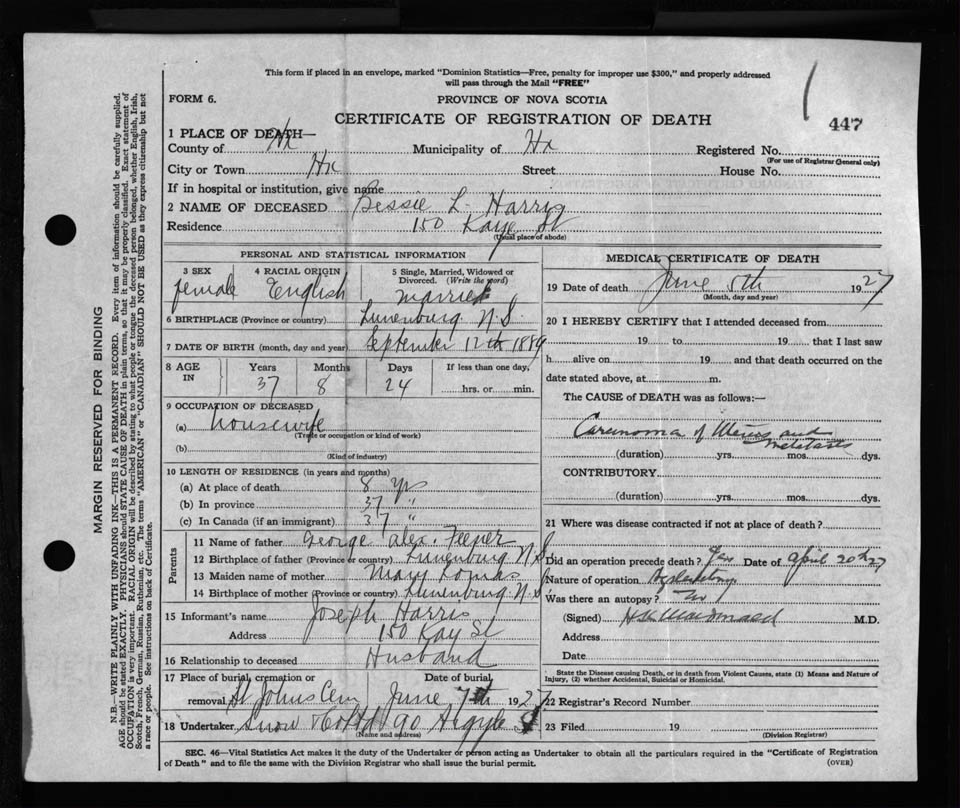 This form if placed in an envelope, marked "Dominion Statistics—Free, penalty for improper use $300," and properly addressed
will pass through the Mail "FREE"
FORM 6.
PROVINCE OF NOVA SCOTIA
CERTIFICATE OF REGISTRATION OF DEATH
447
1 PLACE OF DEATH—
County of Hx Municipality of Hx Registered No.
(For use of Registrar General only)
City or Town Hx Street House No.
If in hospital or institution, give name
2 NAME OF DECEASED Bessie L. Harris
Residence 150 Kaye St
(Usual place of abode)
PERSONAL AND STATISTICAL INFORMATION
3 SEX 4 RACIAL ORIGIN 5 Single, Married, Widowed or
Divorced. (Write the word)
female English married
6 BIRTHPLACE (Province or country) Lunenburg N.S.
7 DATE OF BIRTH (month, day and year) September 12th 1889
8 AGE IN Years Months Days If less than one day,
37 8 24 hrs. or min.
9 OCCUPATION OF DECEASED
(a) housewife
(Trade or occupation or kind of work)
(b)
(Kind of industry)
10 LENGTH OF RESIDENCE (in years and months)
(a) At place of death 8 yrs
(b) In province 37 "
(c) In Canada (if an immigrant) 37 "
Parents
11 Name of father George Alex.
12 Birthplace of father (Province or country) Lunenburg N.S.
13 Maiden name of mother Mary
14 Birthplace of mother (Province or country) Lunenburg N.S
15 Informant's name Joseph Harris
Address 150 Kay St
16 Relationship to deceased Husband
17 Place of burial, cremation or Date of burial
removal St Johns Cem June 7th 1927
18 Undertaker Snow & Co Ltd 90 Argyle St
(Name and address)
MEDICAL CERTIFICATE OF DEATH
19 Date of death June 5th 1927
(Month, day and year)
20 I HEREBY CERTIFY that I attended deceased from
19 to 19 that I last saw
h alive on 19 and that death occurred on the
date stated above, at m.
The CAUSE of DEATH was as follows:—
Carcinoma of Uterus and
metastasis
(duration) yrs. mos. dys.
CONTRIBUTORY.
(duration) yrs. mos. dys.
21 Where was disease contracted if not at place of death?
Did an operation precede death? Yes Date of April 20th 27
Nature of operation
Was there an autopsy? No
(Signed) MacDonald M.D.
Address
Date
State the Disease causing Death, or in death from Violent Causes, state (1) Means and Nature of
Injury, (2) whether Accidental, Suicidal or Homicidal.
22 Registrar's Record Number
23 Filed 19
(Division Registrar)
SEC. 46—Vital Statistics Act makes it the duty of the Undertaker or person acting as Undertaker to obtain all the particulars required in the "Certificate of Registration
of Death" and to file the same with the Division Registrar who shall issue the burial permit.
(OVER)
MARGIN RESERVED FOR BINDING
N.B.—WRITE PLAINLY WITH UNFADING INK—THIS IS A PERMANENT RECORD. Every item of information should be carefully supplied.
AGE should be stated EXACTLY. PHYSICIANS should STATE CAUSE OF DEATH in plain terms, so that it may be properly classified. Exact statement of
OCCUPATION is very important. RACIAL ORIGIN will be described by stating to what people or tongue the deceased person belonged, whether English, Irish,
Scotch, French, German, Russian, Ruthenian, etc. The terms "AMERICAN" or "CANADIAN" SHOULD NOT BE USED as they express citizenship but not
a race or people. See instructions on back of Certificate.